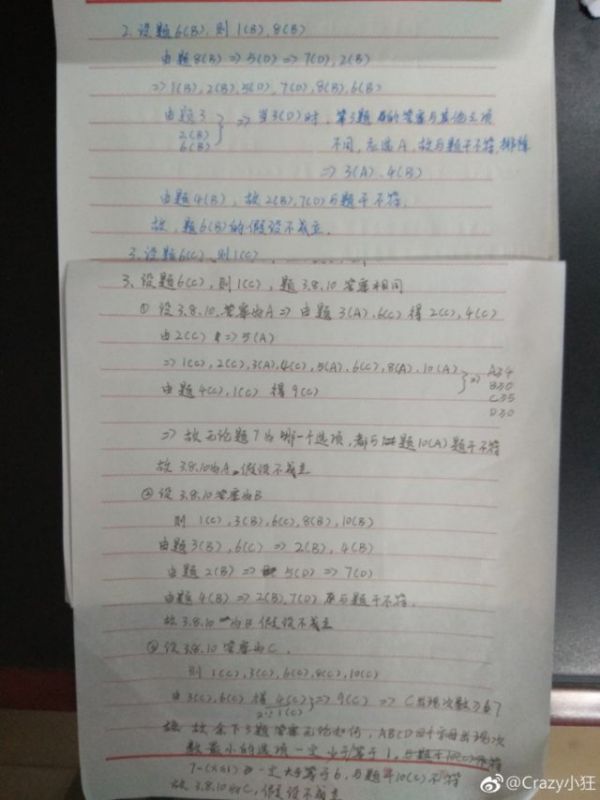 2. 设题6(B),则1(B),8(B)
由题8(B)=>5(D)=>7(D),2(B)
=>1(B),2(B),5(D),7(D),8(B),6(B)
由题3
2(B)
6(B)
=>当3(D)时,第3题的答案与其他三项
不同,应选A,故与题干不符,排除
=>3(A),4(B)
由题4(B),故2(B),7(D)与题干不符.
故,题6(B)的假设不成立.
3.设题6(C),则1(C)
3、设题6(C),则1(C),题3.8.10答案相同
① 设3.8.10答案为A=>由题3(A),6(C)得2(C),4(C)
由2(C)=>5(A)
=>1(C),2(C),3(A),4(C),5(A),6(C),8(A),10(A)
由题4(C),1(C)得9(C)
=>
A34
B30
C55
D30
=>故无论题7为哪一个选项,都与题10(A)题干不符
故3.8.10为A,假设不成立
② 设3.8.10答案为B
则1(C),3(B),6(C),8(B),10(B)
由题3(B),6(C)=>2(B),4(B)
由题2(B)=>5(D)=>7(D)
由题4(B)=>2(B),7(D)与题干不符.
故3.8.10为B假设不成立
③ 设3.8.10答案为C.
则1(C),3(C),6(C),8(C),10(C)
由3(C),6(C)得4(C)=>9(C)=>C出现次数≥67
1(C)
故余下3题答案无论如何,ABCD四个字母出现次
数最小的选项一定少于等于1,与题干10(C)
一定大于等于6,与题10(C)不符
故3.8.10为C,假设不成立
@Crazy小狂